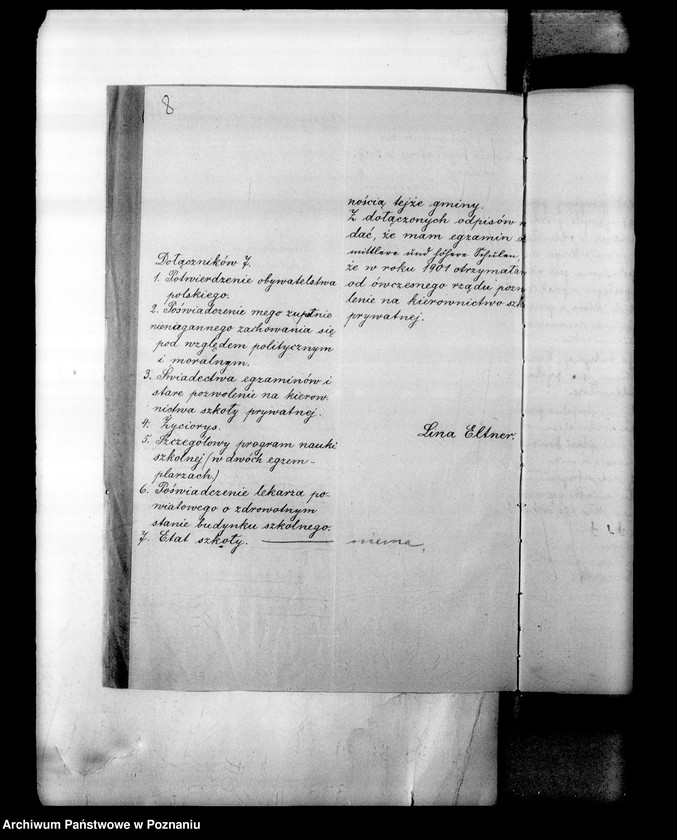 8
Dołączników 7.
1. Potwierdzenie obywatelstwa
polskiego.
2. Poświadczenie mego zupełnie
nienagannego zachowania się
pod względem politycznym
i moralnym.
3. Świadectwa egzaminów i
stare pozwolenie na kierow-
nictwa szkoły prywatnej.
4. Życiorys.
5. Szczegółowy program nauki
szkolnej (w dwóch egzem-
plarzach)
6. Poświadczenie lekarza po-
wiatowego o zdrowotnym
stanie budynku szkolnego.
7. Etat szkoły. niema.
nością tejże gminy.
Z dołączonych odpisów
dać, że mam egzamin
mittlere und höhere Schulen,
że w roku 1901 otrzymałam
od ówczesnego rządu pozw
lenie na kierownictwo szk
prywatnej.
Lina Eltner.
Archiwum Państwowe w Poznaniu